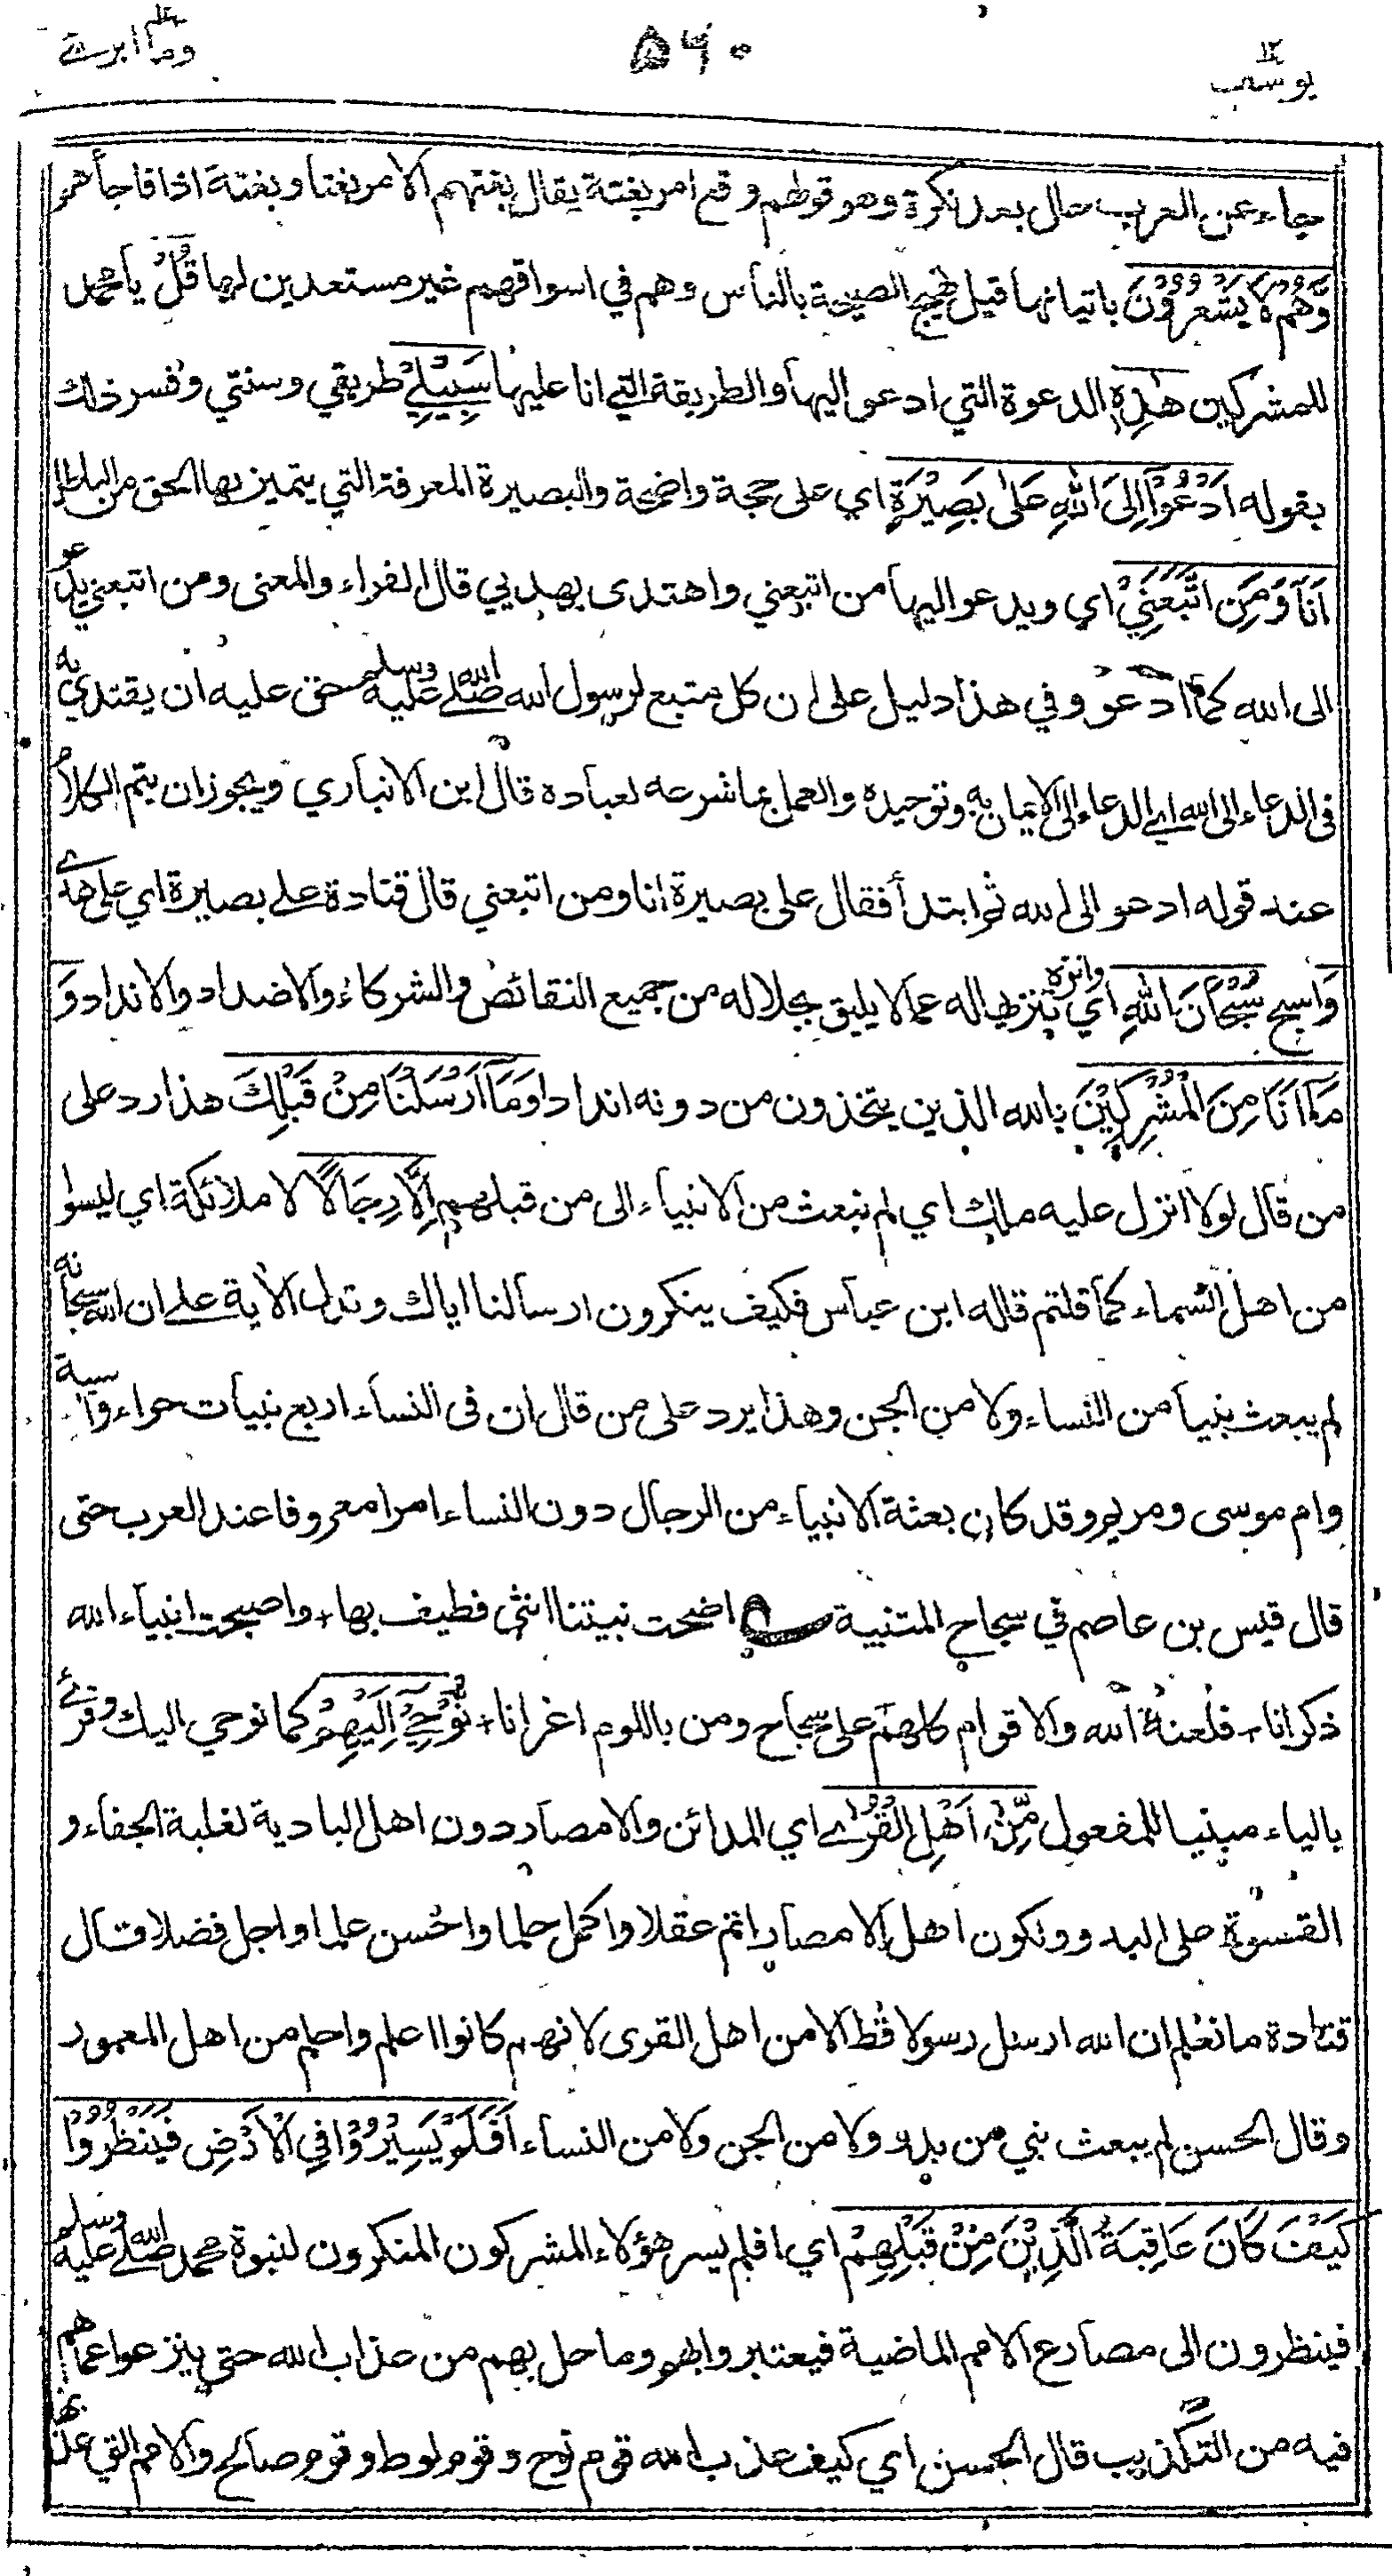 يوسف ١٢ ٥٦٠ وما ابرئ
جاء عن العرب حال بعد نكرة وهو قولهم وقع امر بغتة يقال بغتهم الامر بغتا وبغتة اذا فاجأهم
وَّهُمْ لَا يَشْعُرُوْنَ باتيانها قيل تهيج الصيحة بالناس وهم في اسواقهم غير مستعدين لها قُلْ يا محمد
للمشركين هٰذِهٖ الدعوة التي ادعو اليها والطريقة التي انا عليها سَبِيْلِيْ طريقي وسنتي وفسر ذلك
بقوله اَدْعُوْٓا اِلَى اللّٰهِ عَلٰى بَصِيْرَةٍ اي على حجة واضحة والبصيرة المعرفة التي يتميز بها الحق من الباطل
اَنَا وَمَنِ اتَّبَعَنِيْ اي ويدعو اليها من اتبعني واهتدى بهديي قال الفراء والمعنى ومن اتبعني يدعو
الى الله كما ادعو وفي هذا دليل على ان كل متبع لرسول الله صلى الله عليه وسلم حق عليه ان يقتدي به
فى الدعاء الى الله اي الدعاء الى الايمان به وتوحيده والعمل بما شرعه لعباده قال ابن الانباري ويجوز ان يتم الكلام
عند قوله ادعو الى الله ثم ابتدأ فقال على بصيرة انا ومن اتبعني قال قتادة على بصيرة اي على هدى
وَاسبح سُبْحَانَ اللّٰهِ اي وانزه تنزيها له عما لا يليق بجلاله من جميع النقائص والشركاء والاضداد والانداد وَ
مَآ اَنَا مِنَ الْمُشْرِكِيْنَ بالله الذين يتخذون من دونه اندادا وَمَآ اَرْسَلْنَا مِنْ قَبْلِكَ هذا رد على
من قال لولا انزل عليه ملك اي لم نبعث من الانبياء الى من قبلهم اِلَّا رِجَالًا لا ملائكة اي ليسوا
من اهل السماء كما قلتم قاله ابن عباس فكيف ينكرون ارسالنا اياك وتدل الاية على ان الله سبحانه
لم يبعث نبيا من النساء ولا من الجن وهذا يرد على من قال ان فى النساء اربع نبيات حواء وآسية
وام موسى ومريم وقد كان بعثة الانبياء من الرجال دون النساء امرا معروفا عند العرب حتى
قال قيس بن عاصم في سجاح المتنبية اضحت نبيتنا انثى نطيف بها + واصبحت انبياء الله
ذكرانا + فلعنة الله والاقوام كلهم على سجاح ومن باللوم اغرانا + نُوْحِيْٓ اِلَيْهِمْ كما نوحي اليك وقرئ
بالياء مبنيا للمفعول مِّنْ اَهْلِ الْقُرٰى اي المدائن والامصار دون اهل البادية لغلبة الجفاء و
القسوة على البدو ولكون اهل الامصار اتم عقلا واكمل حلما واحسن علما واجل فضلا قال
قتادة ما نعلم ان الله ارسل رسولا قط الا من اهل القرى لانهم كانوا اعلم واحلم من اهل العمود
وقال الحسن لم يبعث نبي من بدو ولا من الجن ولا من النساء اَفَلَمْ يَسِيْرُوْا فِي الْاَرْضِ فَيَنْظُرُوْا
كَيْفَ كَانَ عَاقِبَةُ الَّذِيْنَ مِنْ قَبْلِهِمْ اي افلم يسر هؤلاء المشركون المنكرون لنبوة محمد صلى الله عليه وسلم
فينظرون الى مصارع الامم الماضية فيعتبروا بهم وما حل بهم من عذاب الله حتى ينزعوا عما هم
فيه من التكذيب قال الحسن اي كيف عذب الله قوم نوح وقوم لوط وقوم صالح والامم التي عذبها